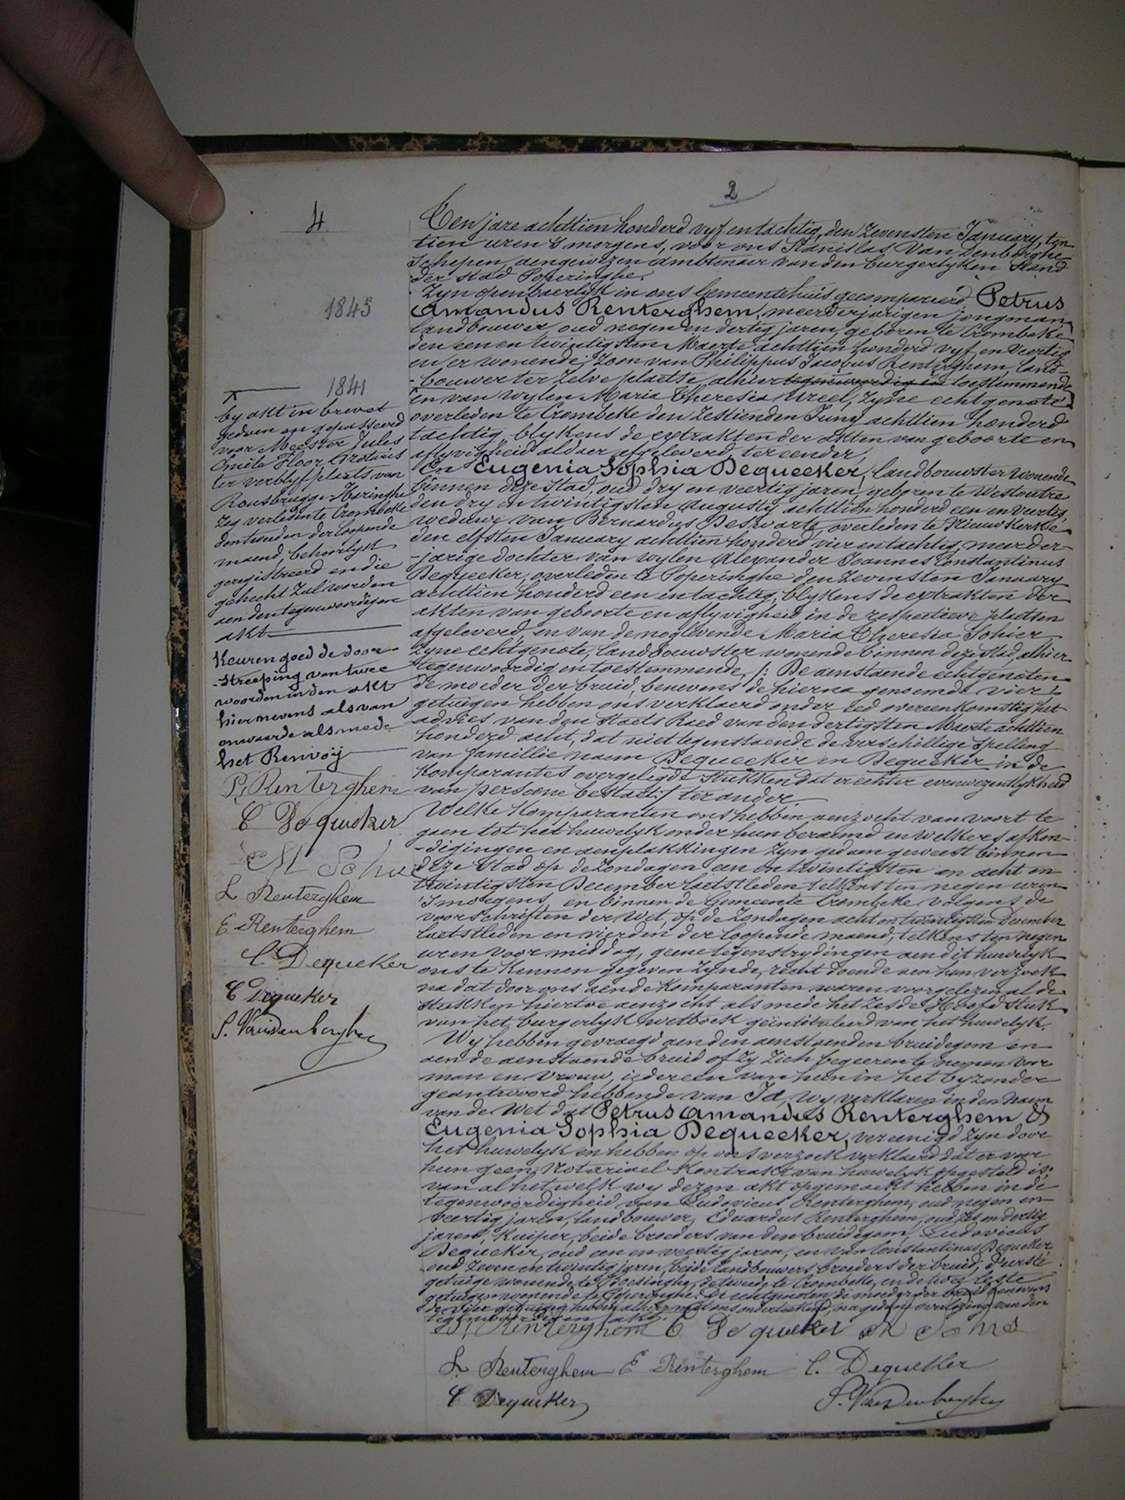 2
4
Ten jare achttien honderd vyf en tachtig, den zevensten January, ten
tien uren 's morgens, voor ons Stanislas Van Denberghe
Schepen, aengewezen Ambtenaer van den burgerlyken Stand
der stad Poperinghe,
Zyn openbaerlyk in ons Gemeentehuis gecompareerd Petrus
Amandus Renterghem, meerderjarigen jongman,
landbouwer, oud negen en dertig jaren, geboren te Crombeke
den een en twintigsten Maerte achttien honderd vyf en veertig
en er wonende; zoon van Philippus Jacobus Renterghem, land-
-bouwer ter zelve plaetse, alhier tegenwoordig en toestemmende
en van wylen Maria Theresia Streel, zyne echtgenote
overleden te Crombeke den zestienden Juny achttien honderd
tachtig, blykens de extrakten der akten van geboorte en
aflyvigheid aldaer afgeleverd, ter eender,
En Eugenia Sophia Dequeeker, landbouwster wonende
binnen deze stad, oud dry en veertig jaren, geboren te Westoutre
den dry en twintigsten Augusty achttien honderd een en veertig,
weduwe van Bernardus Deswarte, overleden te Nieuwkerke
den elfsten January achttien honderd vier en tachtig, meerder-
-jarige dochter van wylen Alexander Joannes Constantinus
Dequeeker, overleden te Poperinghe den zevensten January
achttien honderd een en tachtig, blykens de extrakten der
akten van geboorte en aflyvigheid in de respectieve plaetsen
afgeleverd, en van de nog levende Maria Theresia Sohier
zyne echtgenote, landbouwster wonende binnen deze stad, alhier
tegenwoordig en toestemmende /: De aenstaende echtgenoten
de moeder der bruid, benevens de hierna genoemde vier
getuigen hebben ons verklaerd onder eed overeenkomstig het
advies van den Staets Raed van den dertigsten Maerte achttien
honderd acht, dat niet tegenstaende de verschillige spelling
van famillie naem Dequeeker en Dequeker in de
komparantes overgelegde stukken dat er echter eenwezentlykheid
van persoone bestaet :/ ter ander.
Welke komparanten ons hebben aenzocht van voort te
gaen tot het huwelyk onder hun beraemd en welkers afkon-
-digingen en aenplakkingen zyn gedaen geweest binnen
deze stad op de zondagen een en twintigsten en acht en
twintigsten December laetstleden, telkens ten negen uren
's morgens, en binnen de Gemeente Crombeke volgens de
voorschriften der Wet, op de zondagen acht en twintigsten December
laetstleden en vierden der loopende maend, telkens ten negen
uren voor middag, geene tegenstrydingen aen dit huwelyk
ons te kennen gegeven zynde, recht doende aen hun verzoek
na dat door ons aen de komparanten waren voorgelezen al de
stukken hiertoe aenzocht als mede het zesde Hoofdstuk
van het burgerlyk wetboek geïntituleerd van het huwelyk,
Wy hebben gevraegd aen den aenstaenden bruidegom en
aen de aenstaende bruid of zy zich begeeren te nemen voor
man en vrouw, iedereen van hun in het byzonder
geantwoord hebbende van Ja, wy verklaren in den naem
van de Wet dat Petrus Amandus Renterghem &
Eugenia Sophia Dequeeker, vereenigd zyn door
het huwelyk en hebben op ons verzoek verklaerd dat er voor
hun geen Notariael Kontrakt van huwelyk opgesteld is;
van al het welk wy dezen akt opgemaekt hebben in de
tegenwoordigheid van Ludovicus Renterghem, oud negen en
veertig jaren, landbouwer, Eduardus Renterghem, oud zes en dertig
jaren, kuiper, beide broeders van den bruidegom, Ludovicus
Dequeker, oud een en veertig jaren, en van Constantinus Dequeker
oud zeven en twintig jaren, beide landbouwers, broeders der bruid, d'eerste
getuige wonende te Boesinghe, de tweede te Crombeke, en de twee leste
getuigen wonende te Poperinghe. De echtgenoten, de moeder der bruid benevens
de vier getuigen hebben alhier met ons onderteekend, na gedane voorlezing van den
tegenwoordigen akt.
P, Renterghem E Dequeker M Sohier
L Renterghem E Renterghem C. Dequeker
C Dequeker S. Vandenberghe
1845
1841
by akt in brevet
gedaen en gepasseerd
voor Meester Jules
Emile Floor, Notaris
ter verblyfplaets van
Rousbrugge-Haringhe
zeg verleden te Crombeke
den tweeden der loopende
maend, behoorlyk
geregistreerd en die
gehecht zal worden
aen den tegenwoordigen
akt
Keuren goed de door-
-streeping van twee
woorden in den akt
hiernevens als van
onwaerde als mede
het Renvoij
P, Renterghem
E Dequeker
M Sohier
L Renterghem
E Renterghem
C. Dequeker
C Dequeker
S. Vandenberghe